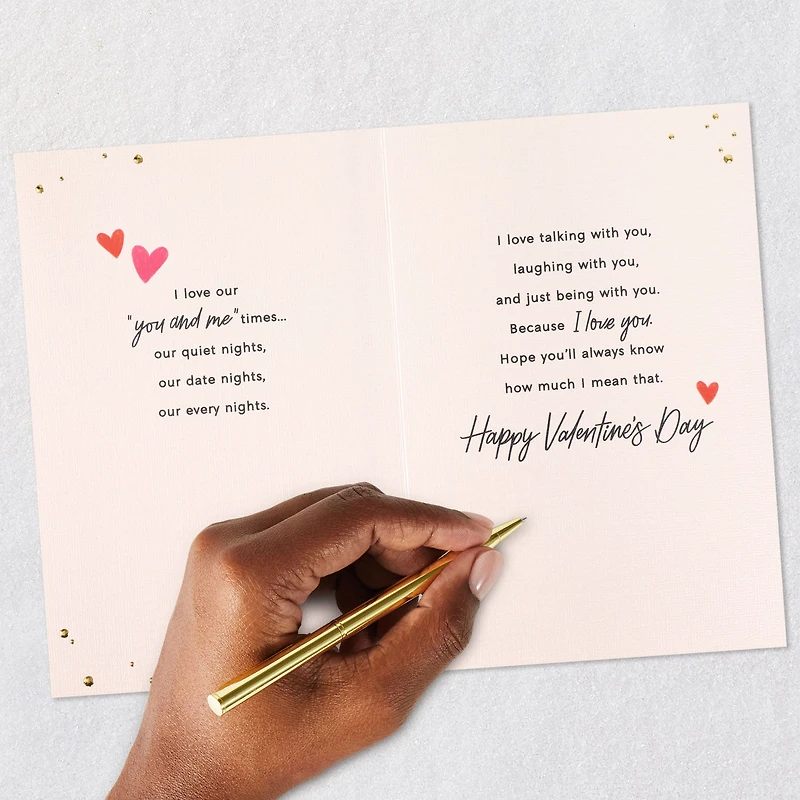 I love our
"you and me" times...
our quiet nights,
our date nights,
our every nights.
I love talking with you,
laughing with you,
and just being with you.
Because I love you.
Hope you'll always know
how much I mean that.
Happy Valentine's Day